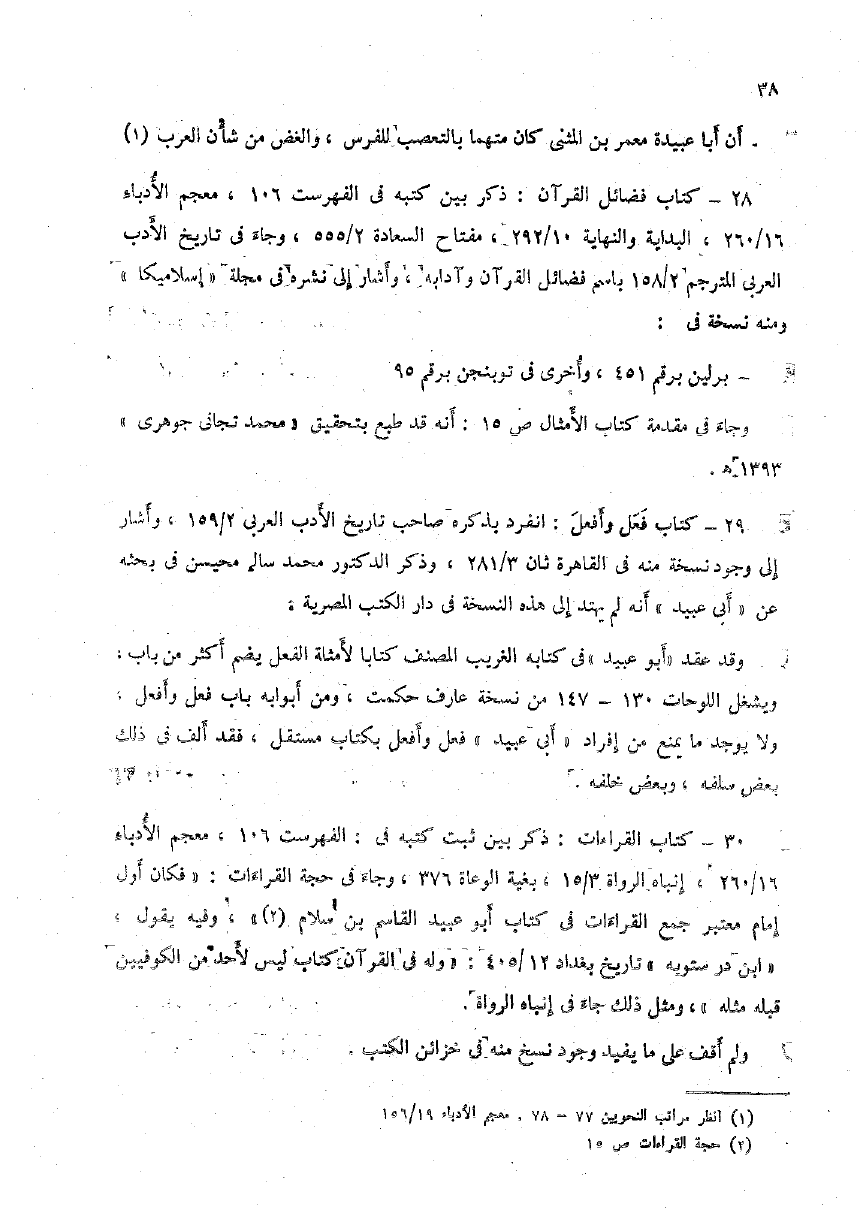 ٣٨
. أن أبا عبيدة معمر بن المثنى كان متهما بالتعصب للفرس ، والغض من شأن العرب (١)
٢٨ – كتاب فضائل القرآن : ذكر بين كتبه فى الفهرست ١٠٦ ، معجم الأُدباء
٢٦٠/١٦ ، البداية والنهاية ٢٩٢/١٠ ، مفتاح السعادة ٥٥٥/٢ ، وجاءَ فى تاريخ الأدب
العربى المترجم ١٥٨/٢ باسم فضائل القرآن وآدابه ، وأشار إلى نشره فى مجلة « إسلاميكا »
ومنه نسخة فى :
– برلين برقم ٤٥١ ، وأُخرى فى توبنجن برقم ٩٥
وجاءَ فى مقدمة كتاب الأمثال ص ١٥ : أنه قد طبع بتحقيق « محمد تجانى جوهرى »
١٣٩٣ ه .
٢٩ – كتاب فَعَل وأَفعلَ : انفرد بذكره صاحب تاريخ الأدب العربى ١٥٩/٢ ، وأشار
إلى وجود نسخة منه فى القاهرة ثان ٢٨١/٣ ، وذكر الدكتور محمد سالم محيسن فى بحثه
عن « أبى عبيد » أنه لم يهتد إلى هذه النسخة فى دار الكتب المصرية :
وقد عقد «أبو عبيد »فى كتابه الغريب المصنف كتابا لأمثلة الفعل يضم أكثر من باب :
ويشغل اللوحات ١٣٠ – ١٤٧ من نسخة عارف حكمت ، ومن أبوابه باب فعل وأفعل :
ولا يوجد ما يمنع من إفراد « أبى عبيد » فعل وأفعل بكتاب مستقل ، فقد ألف فى ذلك
بعض سلفه ، وبعض خلفه .
٣٠ – كتاب القراءات : ذكر بين ثبت كتبه فى : الفهرست ١٠٦ ، معجم الأُدباء
٢٦٠/١٦ ، إنباه الرواة ١٥/٣ ، بغية الوعاة ٣٧٦ ، وجاءَ فى حجة القراءَات : « فكان أول
إمام معتبر جمع القراءَات فى كتاب أبو عبيد القاسم بن سلام (٢)» ، وفيه يقول ،
« ابن در ستويه » تاريخ بغداد ٤٠٥/١٢ : « وله فى القرآن كتاب ليس لأحد من الكوفيين
قبله مثله »، ومثل ذلك جاءَ فى إنباه الرواة .
ولم أقف على ما يفيد وجود نسخ منه فى خزائن الكتب .
(١) انظر مراتب النحويين ٧٧ – ٧٨ . معجم الأدباء ١٥٦/١٩
(٢) حجة القراءات ص ١٥